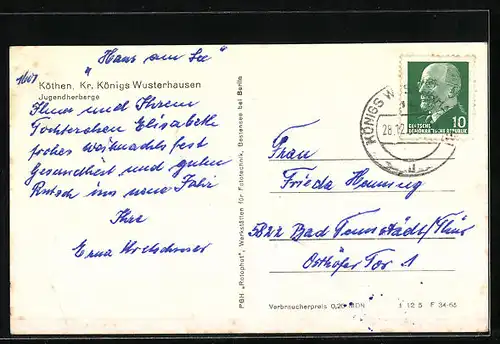 "Haus am See"
Köthen, Kr. Königs Wusterhausen
Jugendherberge
Ihnen und Ihrem
Töchterchen Elisabeth
frohes Weihnachtsfest
Gesundheit und guten
Rutsch ins neue Jahr
Ihre
Erna Kretschmer
PGH „Rotophot", Werkstätten für Fototechnik, Bestensee bei Berlin
KÖNIGS W
28.12
10
DEUTSCHE
DEMOKRATISCHE REPUBLIK
Frau
Frieda Hennung
5822 Bad Tennstädt/Thür
Osthöfer Tor 1
Verbraucherpreis 0,20 MDN
1 12 5 F 34-65